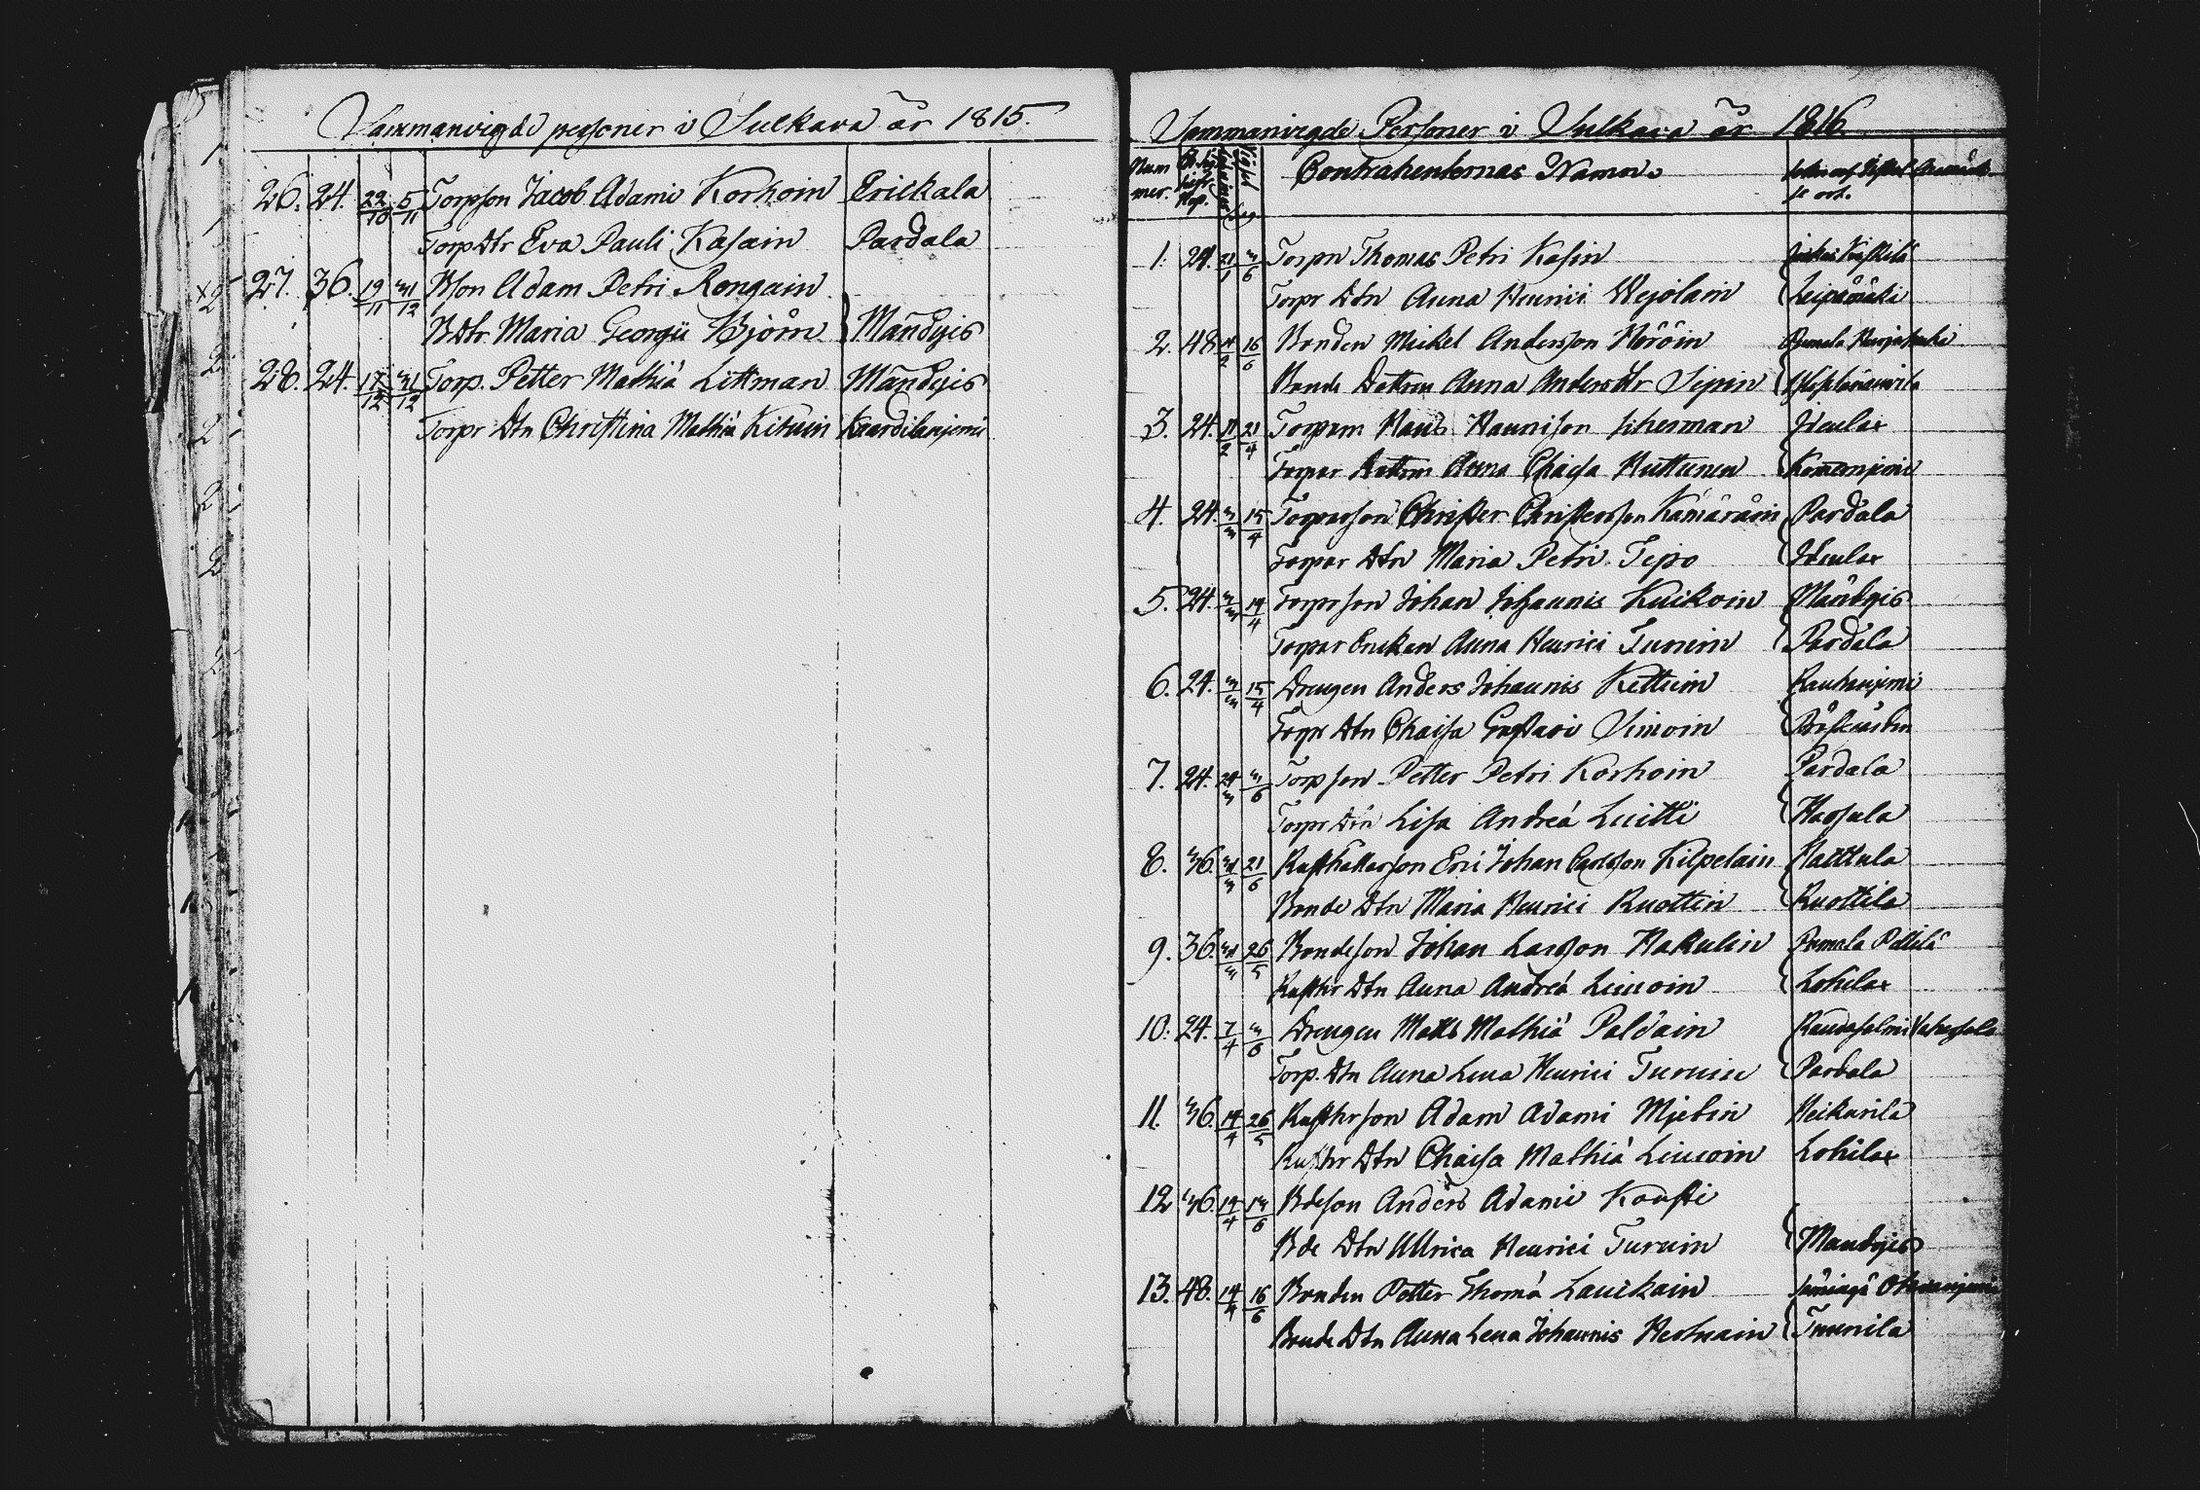 Sammanvigde personer i Sulkava år 1815.
26. 24. 22/10 5/11 Torpson Jacob Adami Korhoin Erickala
Torp Dtr Eva Pauli Kasain Pardala
27. 36. 19/11 31/12 Bson Adam Petri Rongain
BDtr Maria Georgii Björn } Mändyjis
28. 24. 17/12 31/12 Torp. Petter Mathiä Littman Mändyjis
Torpr Dtn Christina Mathiä Kaardilanjemi
Sammanvigde Personer i Sulkava år 1816
Num mer. Contrahenternas Namn
1. 24. 3/6 Torpn Thomas Petri Kasin
Torpr Dtn Anna Henrici Wejolain Leipämäki
2. 48 16/6 Bonden Mickel Andersson Höröin
Bonde Dottren Anna Andersdtr Sipin
3. 24. 21/4 Torparn Hans Hannison Iduulax
Torpar Dottren Anna Chaisa Huttunen
4. 24. 3/3 15/4 Torparson Christer Christersson Kämäräin Pardala
Torpar Dtn Maria Petri Tepo
5. 24. 3/3 14/4 Torparson Johan Johannis Kuikoin Mändyjis
Torpar Enckan Anna Henrici Turuin Pardala
6. 24. 3/3 15/4 Drengen Anders Johannis Kettuin Rauhanjemi
Torpr Dtn Chaisa Gustavi Simoin
7. 24. 24/3 3/6 Torpson Petter Petri Korhoin Pardala
Torpr Dtn Lisa Andreä Luitti Harsula
8. 36. 31/3 21/6 Rusthallarson Eric Johan Carlsson Kilpelain Katttula
Bonde Dtn Maria Henrici Ruottin Ruottila
9. 36. 31/3 26/5 Bondeson Johan Larsson Hakulin Pumala
Rusthr Dtn Anna Andreä Liucoin Lohilax
10. 24. 7/4 3/6 Drengen Matts Mathiä Paldain Randasalmi
Torp. Dtn Anna Lena Henrici Turuin Pardala
11. 36. 14/4 26/5 Rusthrson Adam Adami Mjetin Heikurila
Rusthr Dtn Chaisa Mathiä Liucoin Lohilax
12 36. 14/4 Bdeson Anders Adami Konsti
Bde Dtn Ullrica Henrici Turuin { Mandyjis
13. 48. 14/4 16/6 Bonden Petter Thomä Lauckain
Bonde Dtn Anna Lena Johannis Hestuain Tuunila